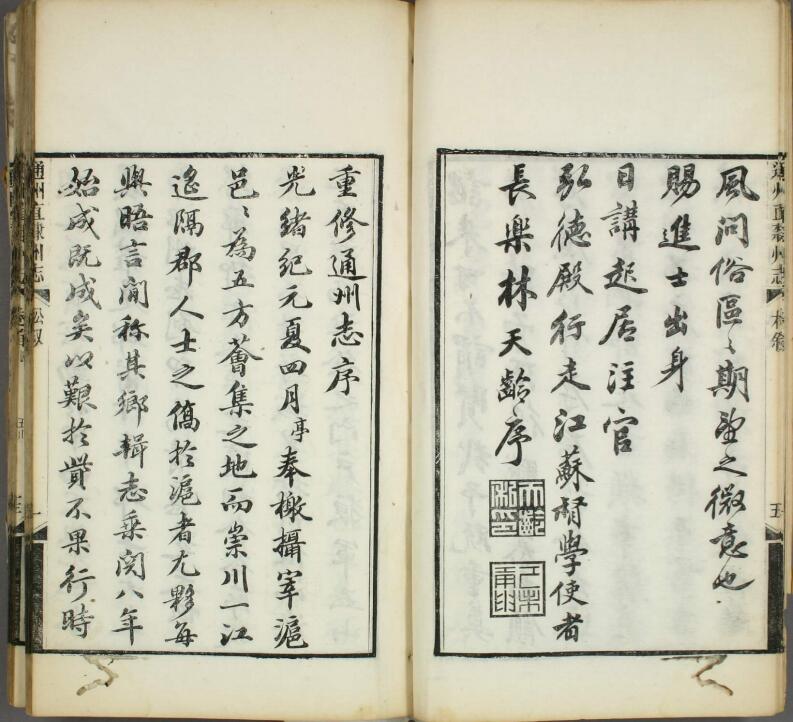 風問俗區〻期望之微意也
賜進士出身
日講起居注官
弘德殿行走江蘇督學使者
長樂林天齡序
重修通州志序
光緒紀元夏四月亭奉檄攝宰滬
邑〻為五方薈集之地而崇川一江
遙隔郡人士之僑於滬者尤夥每
與晤言間稱其鄉輯志乘閱八年
始成既成矣以艱於貲不果行時
通州直隸州志
通州直隸州志